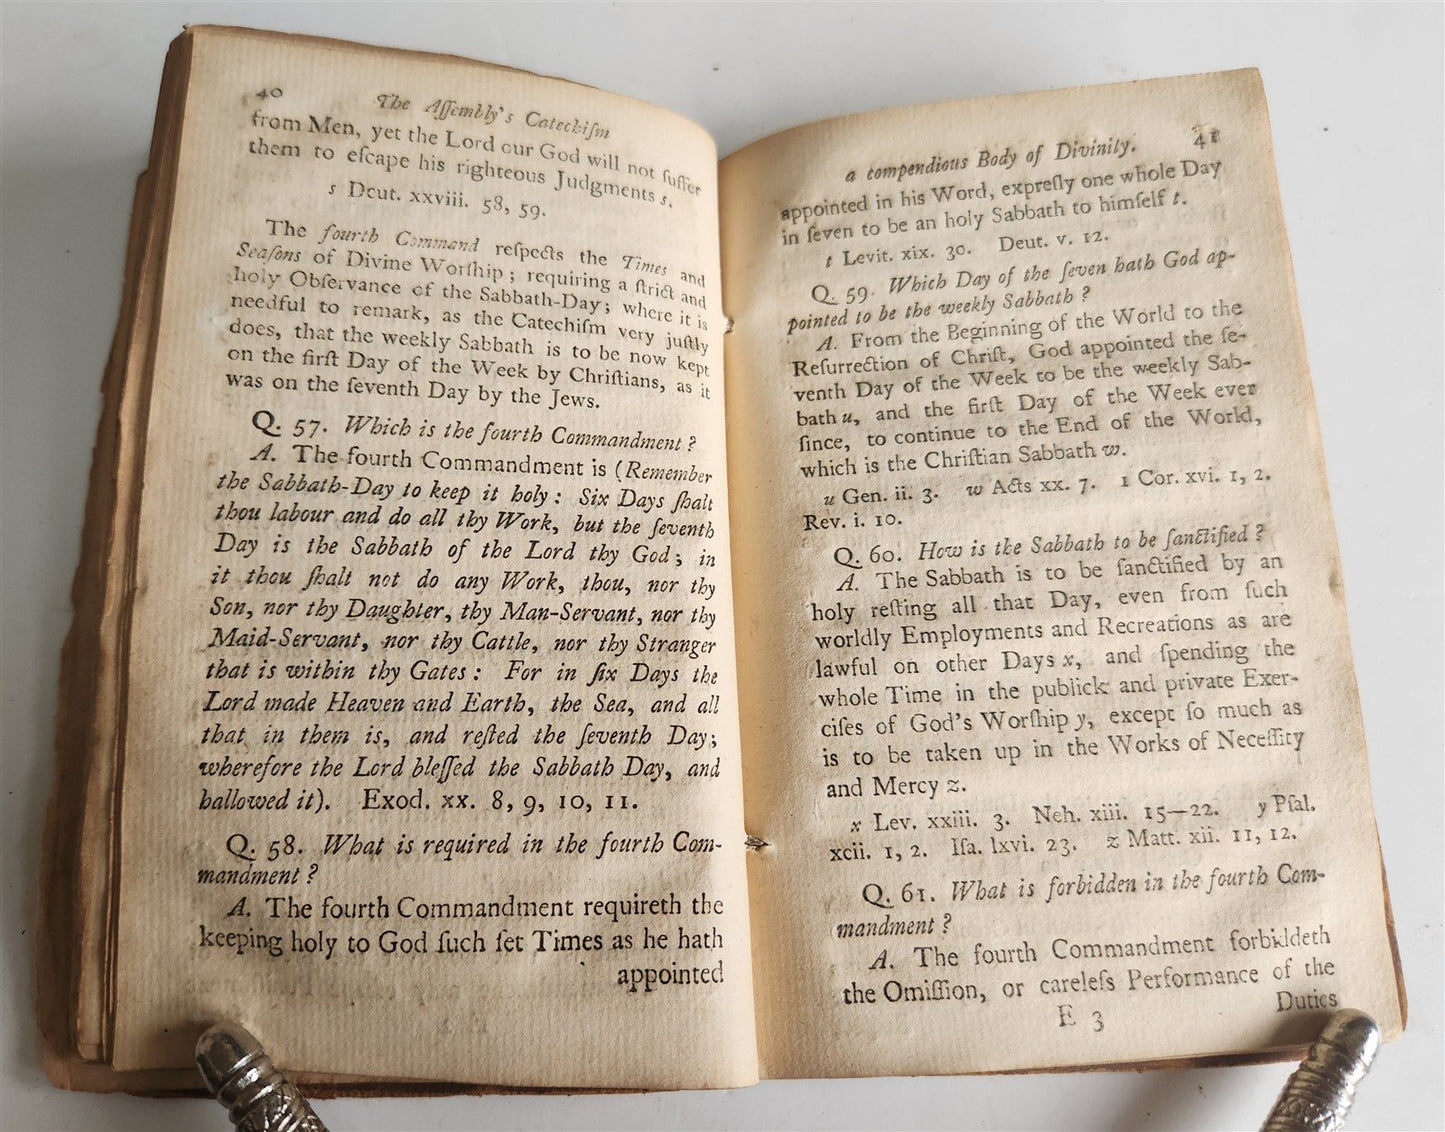 40
The Aſſembly's Catechiſm
from Men, yet the Lord our God will not ſuffer
them to eſcape his righteous Judgments s.
s Deut. xxviii. 58, 59.
The fourth Command reſpects the Times and
Seaſons of Divine Worſhip; requiring a ſtrict and
holy Obſervance of the Sabbath-Day; where it is
needful to remark, as the Catechiſm very juſtly
does, that the weekly Sabbath is to be now kept
on the firſt Day of the Week by Chriſtians, as it
was on the ſeventh Day by the Jews.
Q. 57. Which is the fourth Commandment?
A. The fourth Commandment is (Remember
the Sabbath-Day to keep it holy: Six Days ſhalt
thou labour and do all thy Work, but the ſeventh
Day is the Sabbath of the Lord thy God; in
it thou ſhalt not do any Work, thou, nor thy
Son, nor thy Daughter, thy Man-Servant, nor thy
Maid-Servant, nor thy Cattle, nor thy Stranger
that is within thy Gates: For in ſix Days the
Lord made Heaven and Earth, the Sea, and all
that in them is, and reſted the ſeventh Day;
wherefore the Lord bleſſed the Sabbath Day, and
hallowed it). Exod. xx. 8, 9, 10, 11.
Q. 58. What is required in the fourth Com-
mandment?
A. The fourth Commandment requireth the
keeping holy to God ſuch ſet Times as he hath
appointed
a compendious Body of Divinity. 41
appointed in his Word, expreſly one whole Day
in ſeven to be an holy Sabbath to himſelf t.
t Levit. xix. 30. Deut. v. 12.
Q. 59. Which Day of the ſeven hath God ap-
pointed to be the weekly Sabbath?
A. From the Beginning of the World to the
Reſurrection of Chriſt, God appointed the ſe-
venth Day of the Week to be the weekly Sab-
bath u, and the firſt Day of the Week ever
ſince, to continue to the End of the World,
which is the Chriſtian Sabbath w.
u Gen. ii. 3. w Acts xx. 7. 1 Cor. xvi. 1, 2.
Rev. i. 10.
Q. 60. How is the Sabbath to be ſanctified?
A. The Sabbath is to be ſanctified by an
holy reſting all that Day, even from ſuch
worldly Employments and Recreations as are
lawful on other Days x, and ſpending the
whole Time in the publick and private Exer-
ciſes of God's Worſhip y, except ſo much as
is to be taken up in the Works of Neceſſity
and Mercy z.
x Lev. xxiii. 3. Neh. xiii. 15—22. y Pſal.
xcii. 1, 2. Iſa. lxvi. 23. z Matt. xii. 11, 12.
Q. 61. What is forbidden in the fourth Com-
mandment?
A. The fourth Commandment forbiddeth
the Omiſſion, or careleſs Performance of the
E 3 Duties